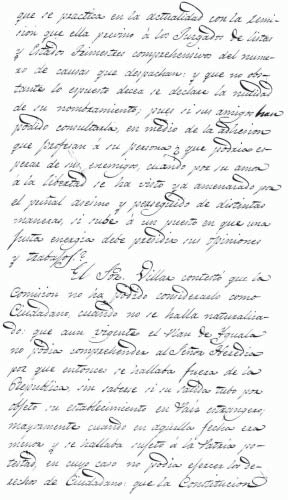 que se practica en la actualidad con la remi-
sion que ella previno á los Juzgados de listas
y Estados trimestres comprehensivos del nume-
ro de causas que despachan: y que no obs-
tante lo espuesto decia se declare la nulidad
de su nombramiento; pues si sus amigos han
podido consultarla, en medio de la adhesion
que profesan á su persona ¿ que podria es-
perar de sus enemigos, cuando por su amor
á la libertad se ha visto ya amenazado por
el puñal asesino y perseguido de distintas
maneras, si sube á un puesto en que una
justa energia debe presidir sus opiniones
y trabajos?
El Sor. Villar contestó que la
Comision no ha podido considerarlo como
Ciudadano, cuando no se halla naturaliza-
do: que aun vigente el Plan de Yguala
no podia comprehender al Señor Heredia
por que entonces se hallaba fuera de la
Republica, sin saberse si su salida tubo por
objeto su establecimiento en Pais estrangero;
mayormente cuando en aquella fecha era
menor y se hallaba sujeto á la Patria po-
testad, en cuyo caso no podia ejercer los de-
rechos de Ciudadano: que la Constitucion